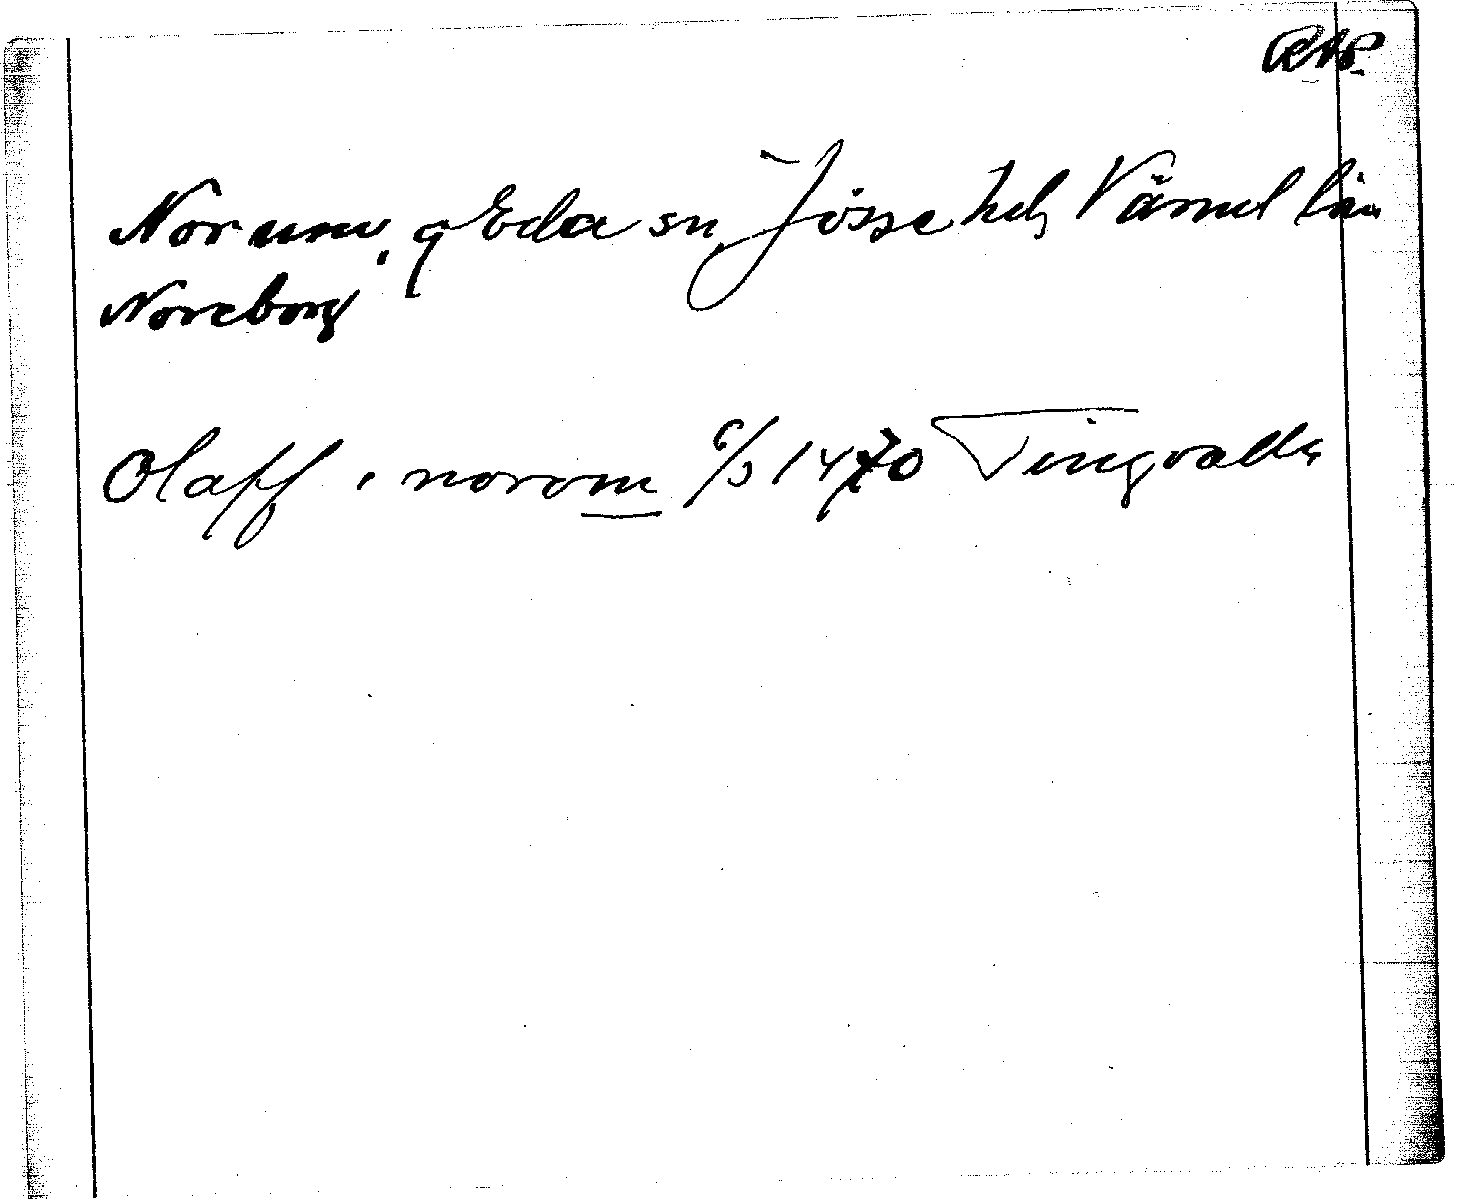 RAP.
Norum, g Eda sn Jösse hd, Värml län
Noreborg
Olaff i norom 6/3 1470 Tingvalla